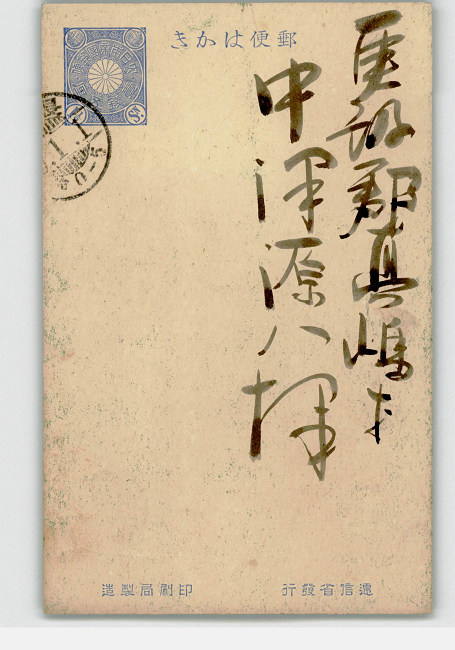 郵便はかき
更級郡真嶋村
中澤源八様
遞信省發行
印刷局製造